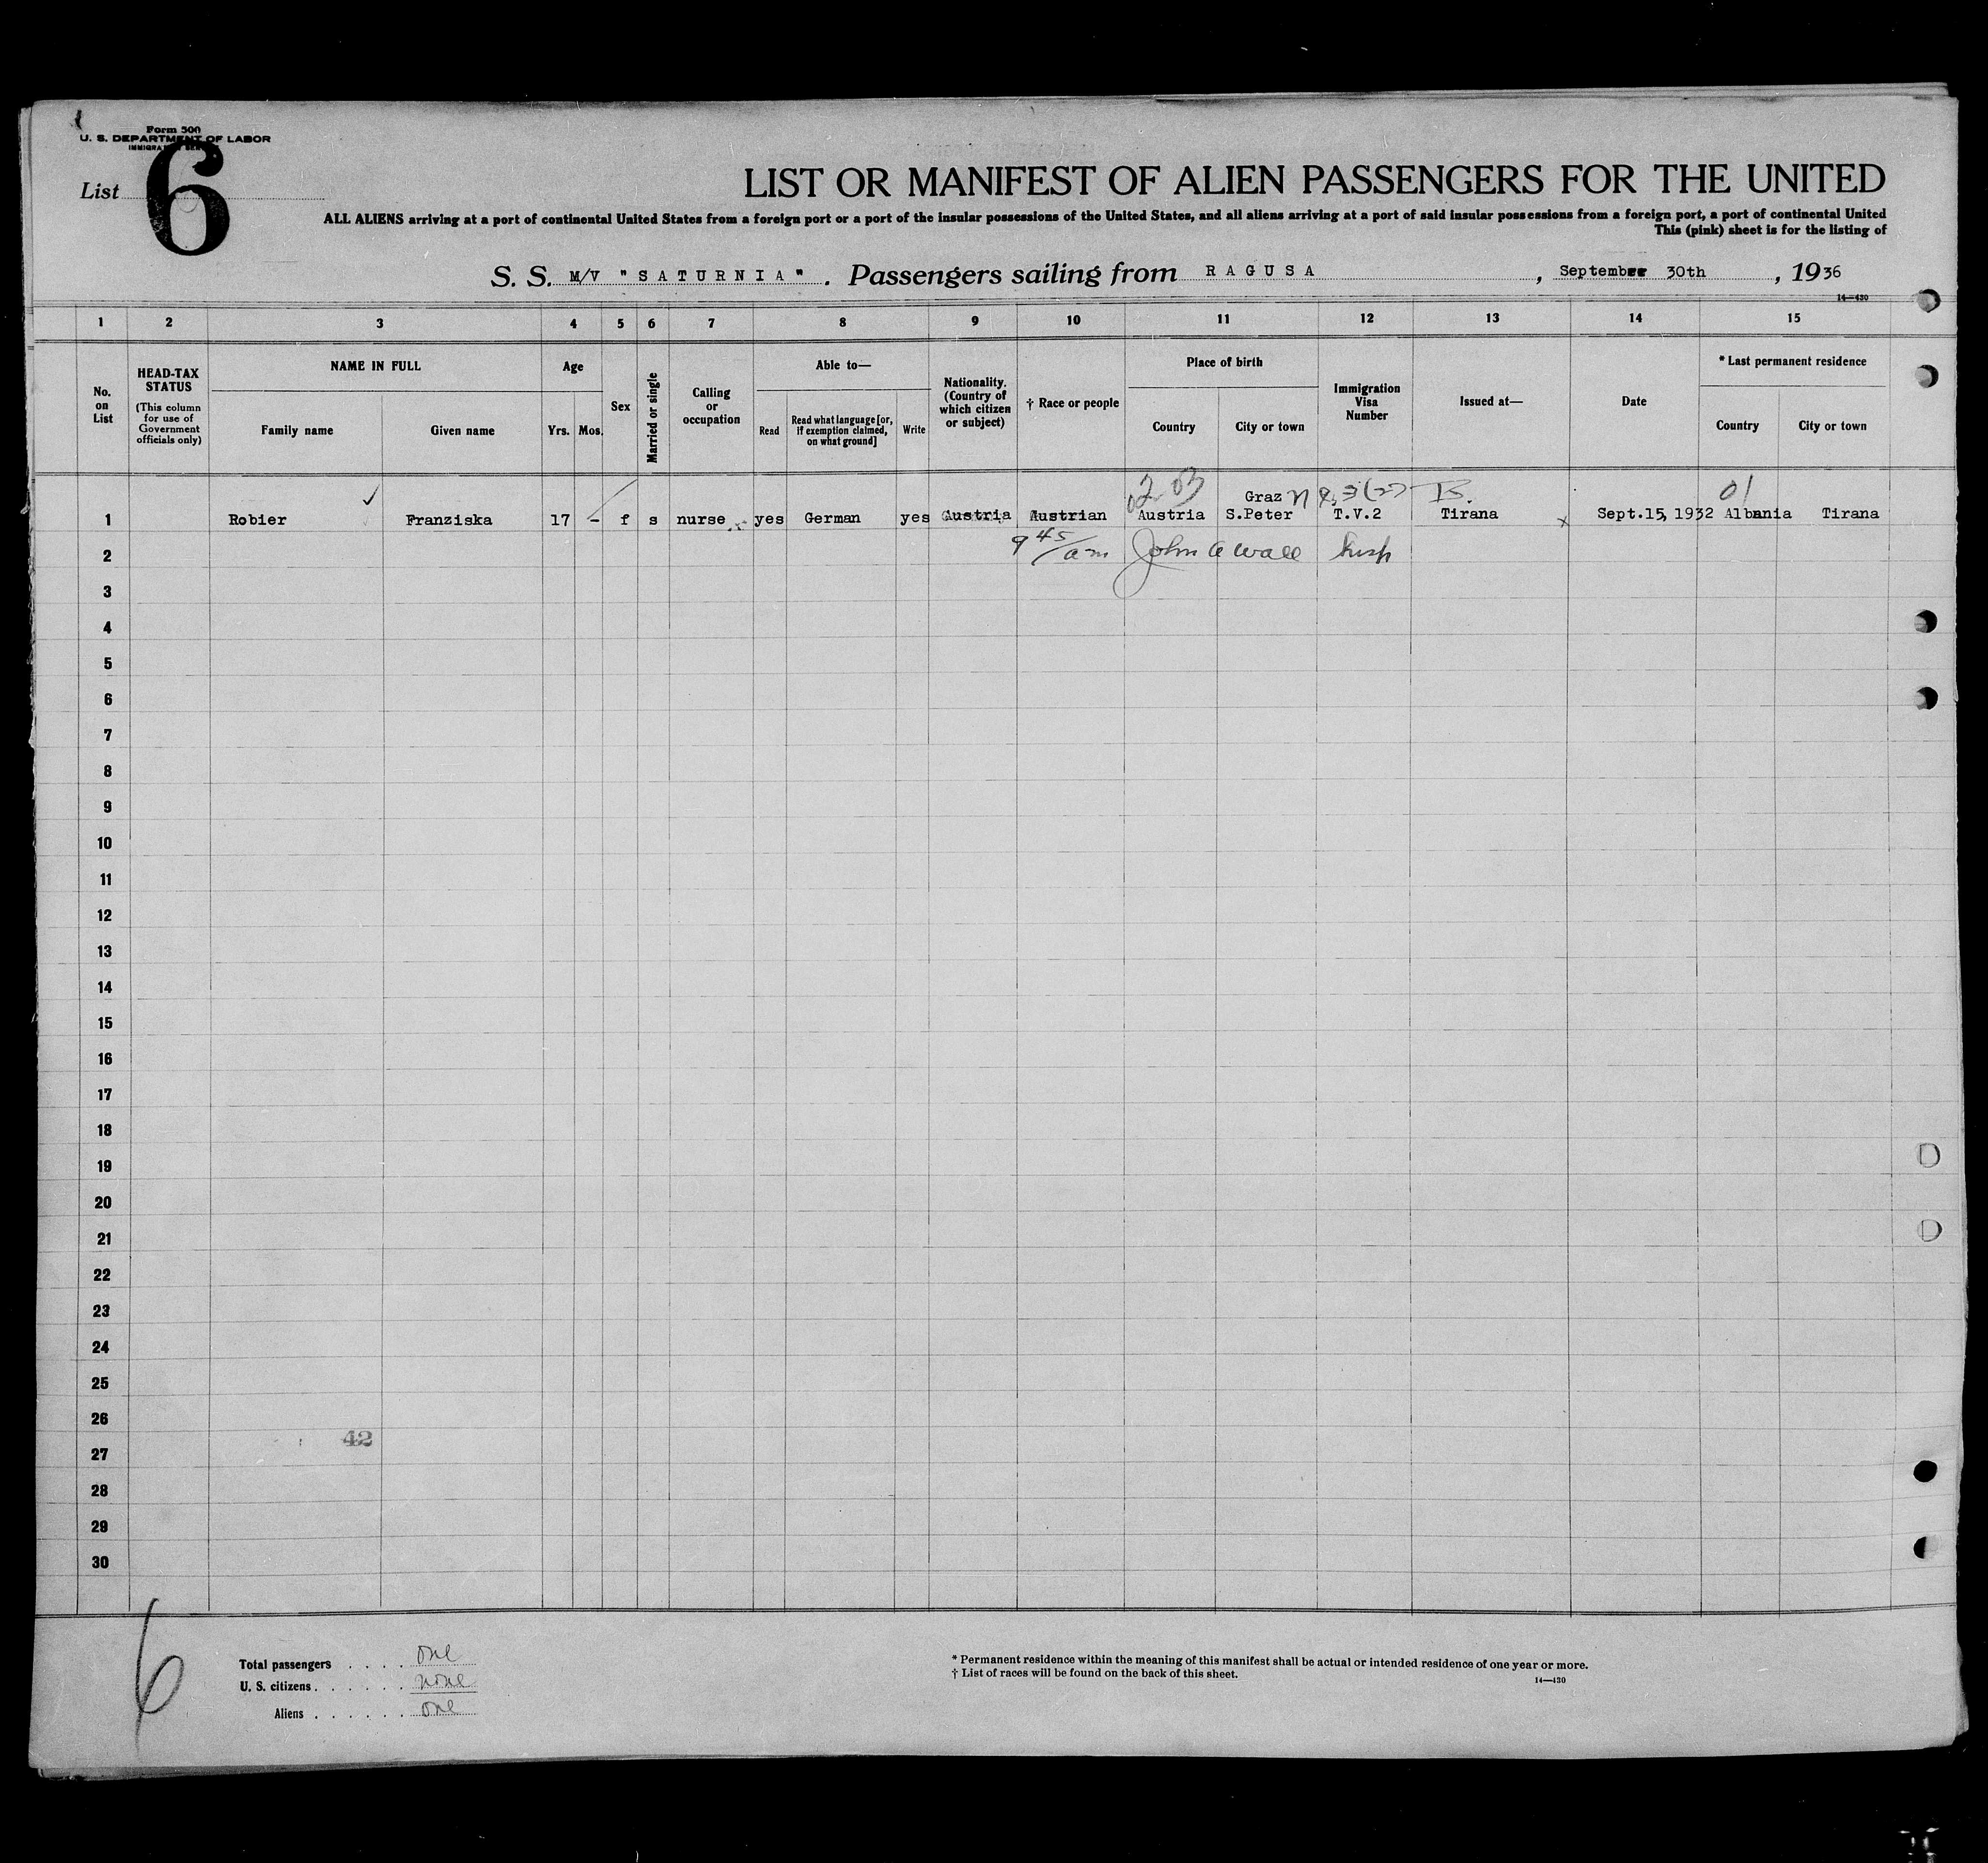 Form 500
U. S. DEPARTMENT OF LABOR
List 6
LIST OR MANIFEST OF ALIEN PASSENGERS FOR THE UNITED
ALL ALIENS arriving at a port of continental United States from a foreign port or a port of the insular possessions of the United States, and all aliens arriving at a port of said insular possessions from a foreign port, a port of continental United
This (pink) sheet is for the listing of
S. S. M/V "SATURNIA". Passengers sailing from RAGUSA, September 30th, 1936
14—430
1 2 3 4 5 6 7 8 9 10 11 12 13 14 15
No. on List
HEAD-TAX STATUS
(This column for use of Government officials only)
NAME IN FULL
Family name
Given name
Age
Yrs.
Mos.
Sex
Married or single
Calling or occupation
Able to—
Read
Read what language [or, if exemption claimed, on what ground]
Write
Nationality. (Country of which citizen or subject)
† Race or people
Place of birth
Country
City or town
Immigration Visa Number
Issued at—
Date
* Last permanent residence
Country
City or town
02 03 Graz 01
1 Robier Franziska 17 – f s nurse yes German yes Austria Austrian Austria S.Peter T.V.2 Tirana Sept.15, 1932 Albania Tirana
2 9 45/am John A Wall Insp
3
4
5
6
7
8
9
10
11
12
13
14
15
16
17
18
19
20
21
22
23
24
25
26
42
27
28
29
30
6
Total passengers . . . . one
U. S. citizens . . . . . . none
Aliens . . . . . . one
* Permanent residence within the meaning of this manifest shall be actual or intended residence of one year or more.
† List of races will be found on the back of this sheet.
14—430